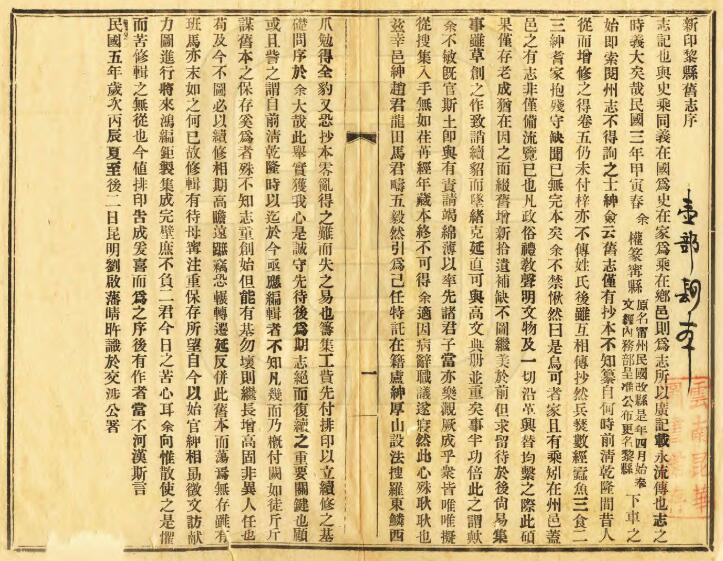 新印黎縣舊志序
志記也與史乘同義在國爲史在家爲乘在鄉邑則爲志所以廣記載永流傳也志之
時義大矣哉民國三年甲寅春余權篆寗縣原名甯州民國改縣是年四月始奉文經內務部呈准公布更名黎縣下車之
始即索閱州志不得詢之士紳僉云舊志僅有抄本不知纂自何時前淸乾隆間昔人
從而增修之得卷五仍未付梓亦不傳姓氏後雖互相傳抄然兵燹數經蠹魚三食二
三紳耆家抱殘守缺聞已無完本矣余不禁愀然曰是烏可者家且有乘矧在州邑蓋
邑之有志非僅備流覽已也凡政俗禮敎聲明文物及一切沿革興替均繫之際此碩
果僅存老成猶在因之而綴舊增新拾遺補缺不圖繼美於前但求留待於後尙易集
事雖草創之作致誚續貂而墜緒克延直可與高文典册並重矣事半功倍此之謂歟
余不敏旣官斯土卽與有責請竭綿薄以率先諸君子當亦樂觀厥成乎衆皆唯唯擬
從搜集入手無如荏苒經年藏本終不可得余適因病辭職議遂寢然此心殊耿耿也
茲幸邑紳趙君龍田馬君疇五毅然引爲己任特託在籍盧紳厚山設法搜羅東鱗西
爪勉得全豹又恐抄本零亂得之難而失之易也籌集工費先付排印以立續修之基
礎問序於余大哉此舉實獲我心是誠守先待後爲期志絕而復續之重要關鍵也顧
或且訾之謂自前淸乾隆時以迄於今亟應編輯者不知凡幾而乃槪付闕如徒斤斤
謀舊本之保存奚爲者殊不知志重創始但能有基勿壞則繼長增高固非異人任也
苟及今不圖必以續修相期高瞻遠矚竊恐輾轉遷延反倂此舊本而蕩焉無存雖有
班馬亦末如之何已故修輯有待毋寗注重保存所望自今以始官紳相勗徵文訪獻
力圖進行將來鴻編鉅製集成完璧庶不負二君今日之苦心耳余向惟散使之是懼
而苦修輯之無從也今値排印告成爰喜而爲之序後有作者當不河漢斯言
民國五年歲次丙辰夏至後二日昆明劉啟藩晴昨識於交涉公署